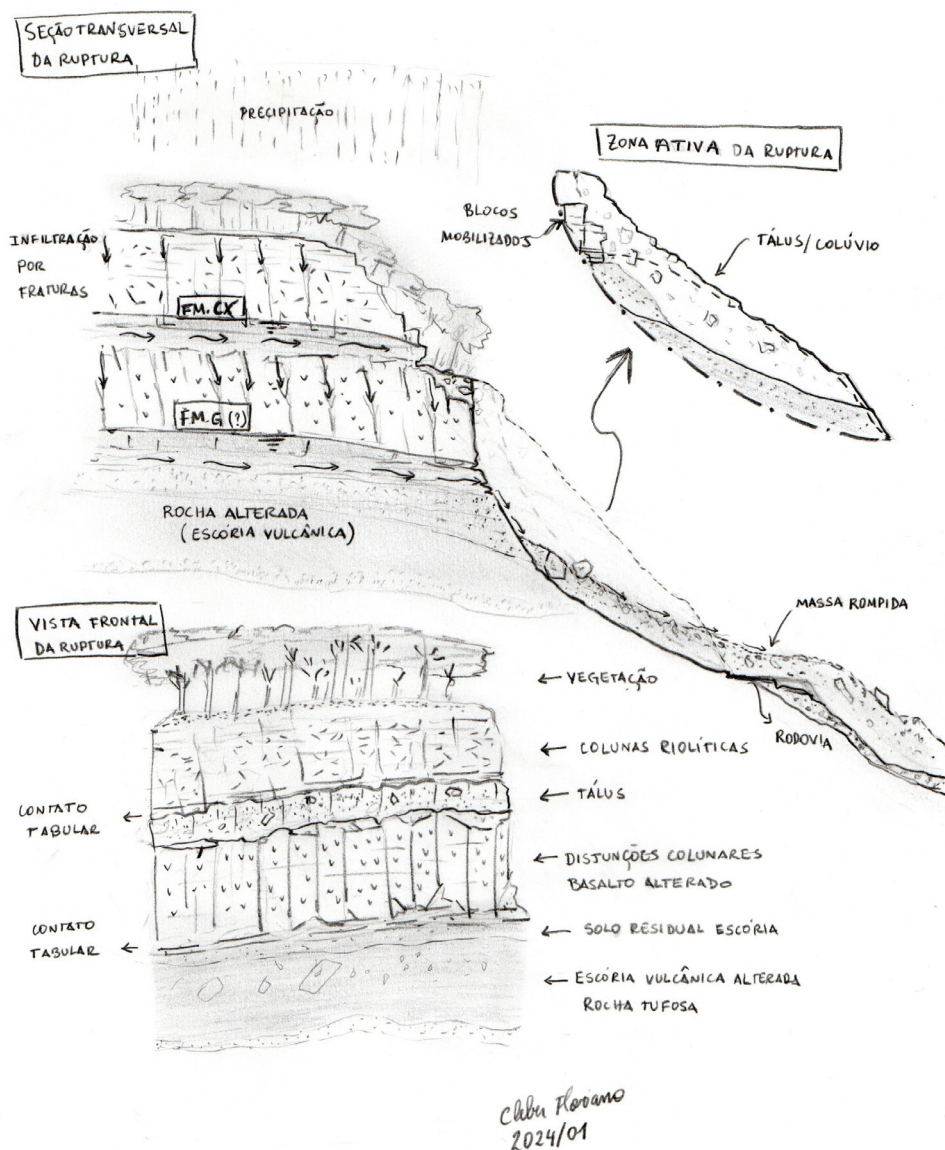 SEÇÃO TRANSVERSAL
DA RUPTURA
PRECIPITAÇÃO
ZONA ATIVA DA RUPTURA
BLOCOS
MOBILIZADOS
TÁLUS/COLÚVIO
INFILTRAÇÃO
POR
FRATURAS
FM. CX
FM. G (?)
ROCHA ALTERADA
(ESCÓRIA VULCÂNICA)
MASSA ROMPIDA
RODOVIA
VISTA FRONTAL
DA RUPTURA
VEGETAÇÃO
COLUNAS RIOLÍTICAS
TÁLUS
CONTATO
TABULAR
DISJUNÇÕES COLUNARES
BASALTO ALTERADO
CONTATO
TABULAR
SOLO RESIDUAL ESCÓRIA
ESCÓRIA VULCÂNICA ALTERADA
ROCHA TUFOSA
Cleber Floriano
2024/01